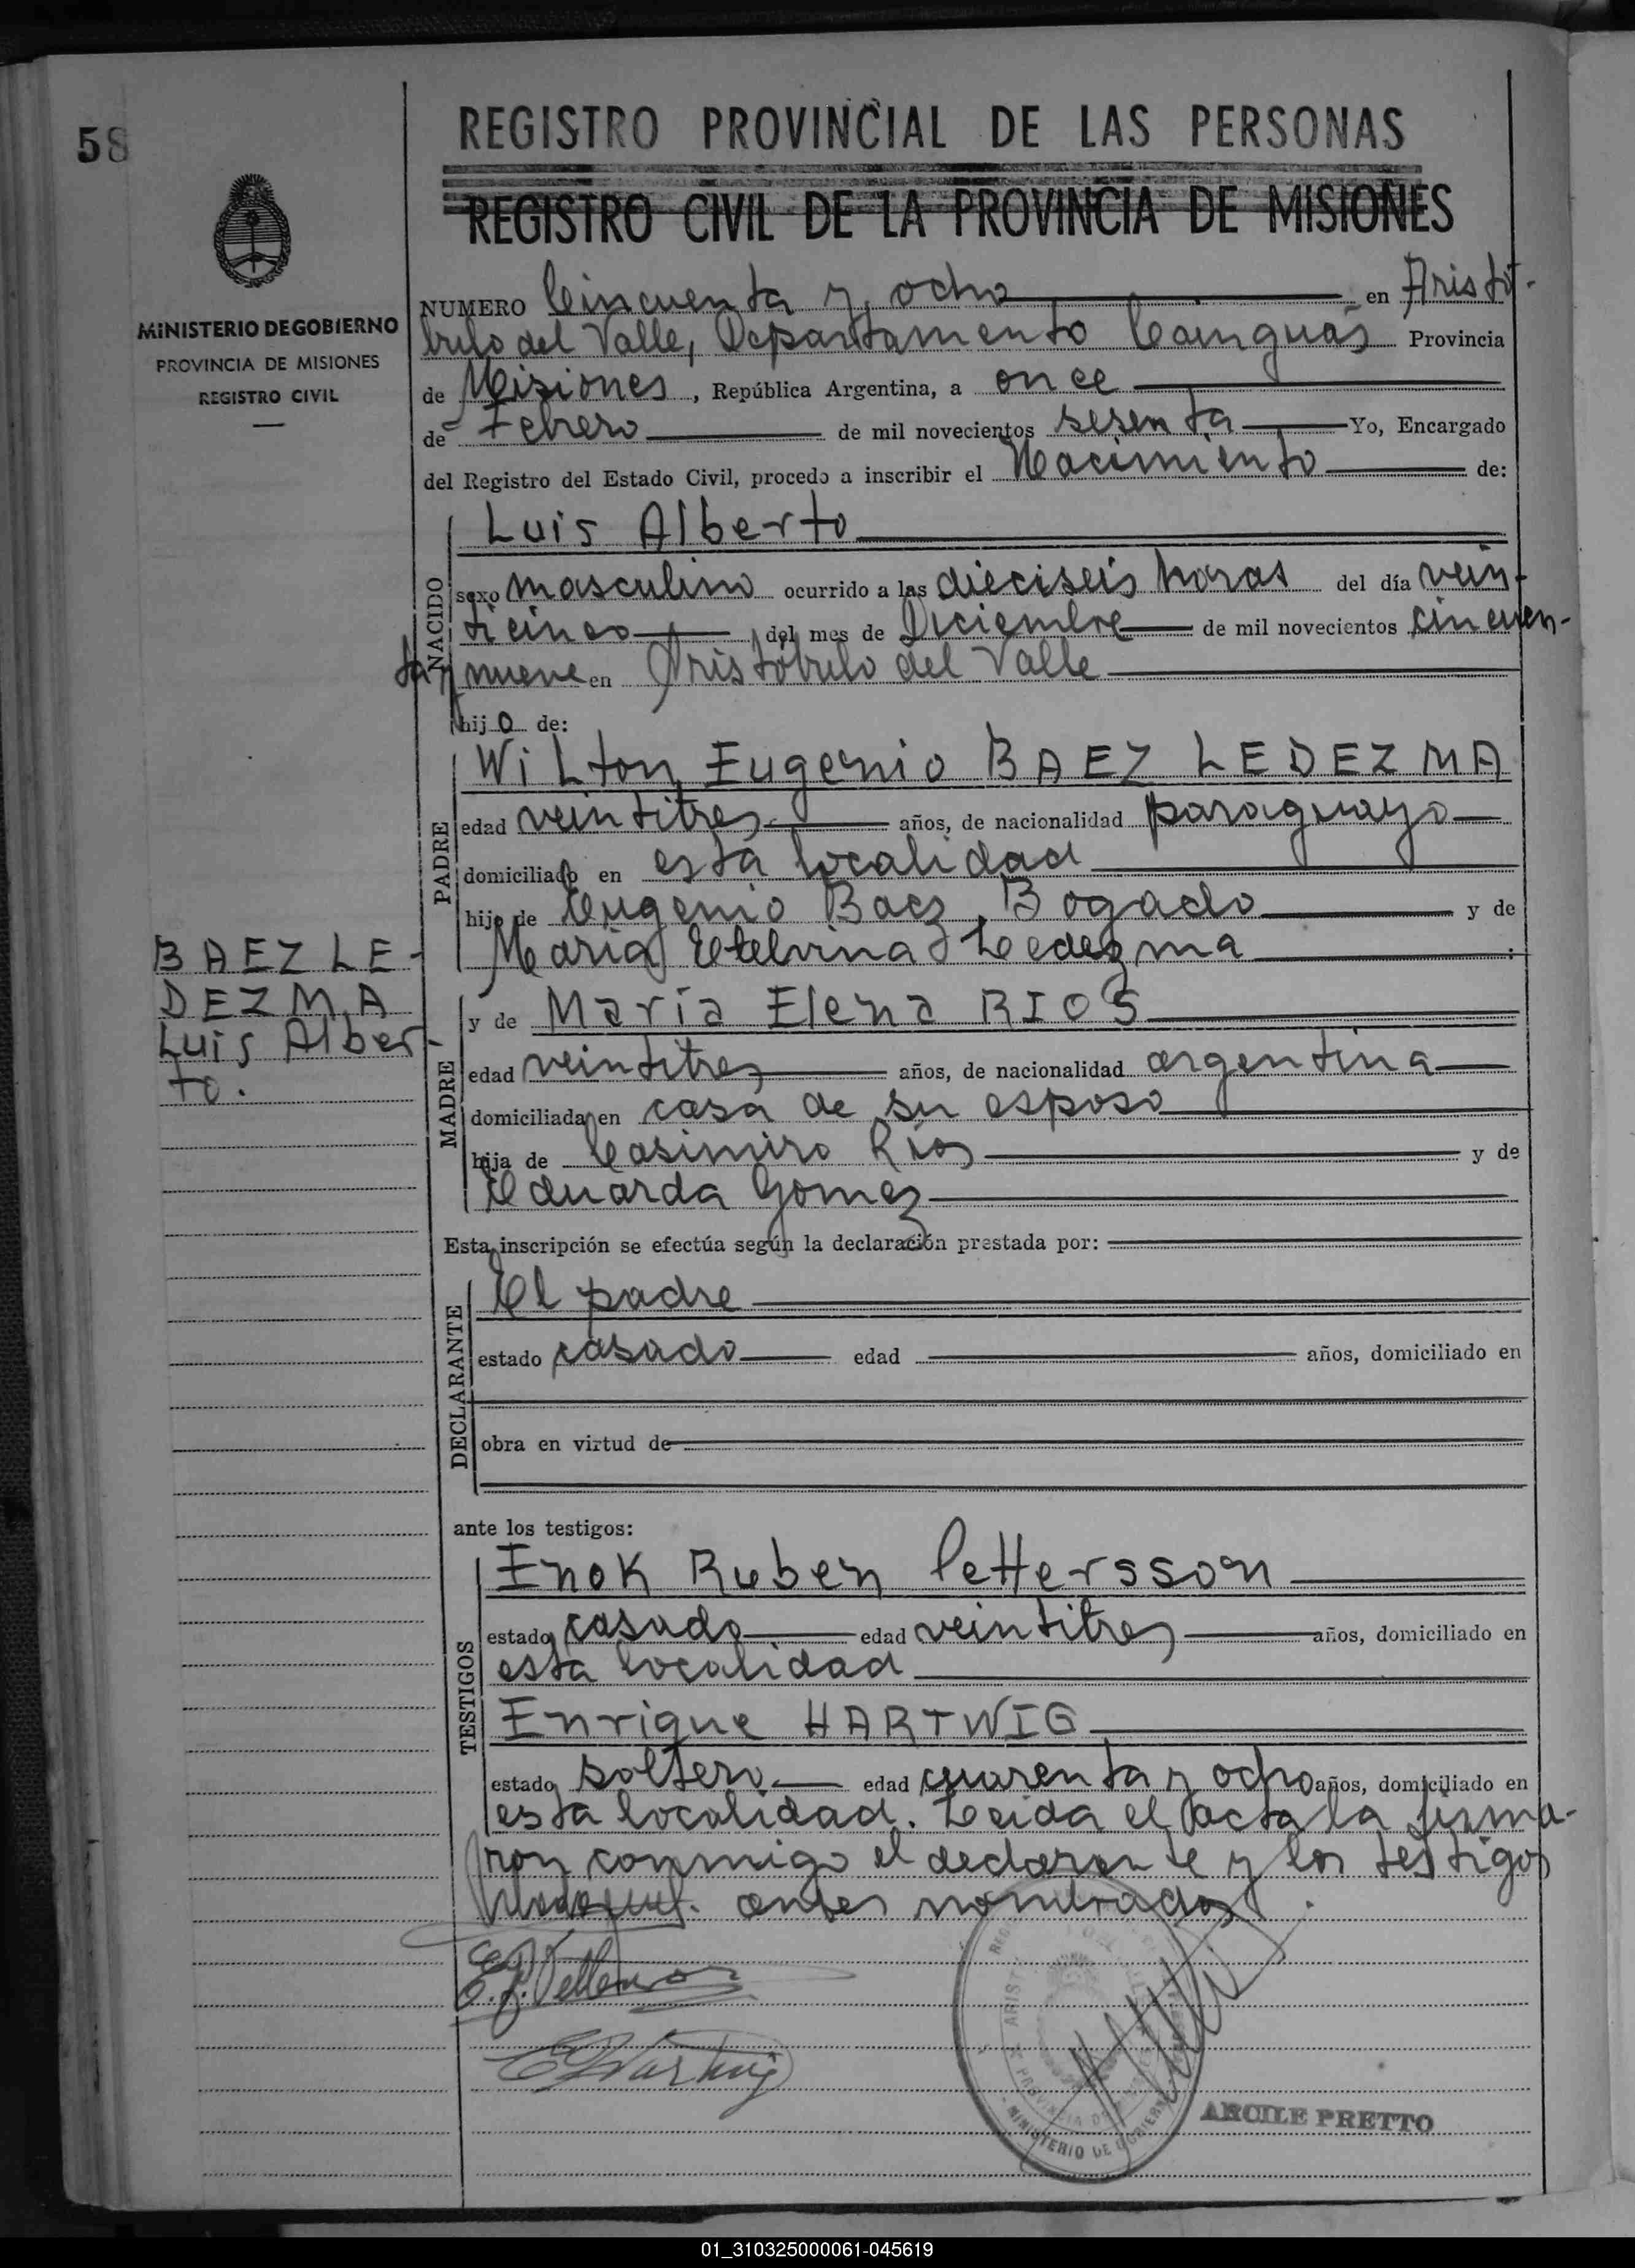 58
REGISTRO PROVINCIAL DE LAS PERSONAS
REGISTRO CIVIL DE LA PROVINCIA DE MISIONES
MINISTERIO DE GOBIERNO
PROVINCIA DE MISIONES
REGISTRO CIVIL
NUMERO Cincuenta y ocho en Aristó-
bulo del Valle, Departamento Cainguás Provincia
de Misiones, República Argentina, a once
de Febrero de mil novecientos sesenta Yo, Encargado
del Registro del Estado Civil, procedo a inscribir el Nacimiento de:
NACIDO
Luis Alberto
sexo masculino ocurrido a las dieciseis horas del día vein-
ticinco del mes de Diciembre de mil novecientos cincuen-
ta y nueve en Aristóbulo del Valle
hijo de:
PADRE
Wilton Eugenio BAEZ LEDEZMA
edad veintitres años, de nacionalidad paraguayo
domiciliado en esta localidad
hijo de Eugenio Baez Bogado y de
Maria Etelvina Ledezma
BAEZ LE-
DEZMA
Luis Alber-
to.
MADRE
y de María Elena RIOS
edad veintitres años, de nacionalidad argentina
domiciliada en casa de su esposo
hija de Casimiro Ríos y de
Eduarda Gomez
Esta inscripción se efectúa según la declaración prestada por:
DECLARANTE
El padre
estado casado edad años, domiciliado en
obra en virtud de
ante los testigos:
TESTIGOS
Enok Ruben Pettersson
estado casado edad veintitres años, domiciliado en
esta localidad
Enrique HARTWIG
estado soltero edad cuarenta y ocho años, domiciliado en
esta localidad. Leida el acta la firma-
ron conmigo el declarante y los testigos
antes nombrados.
E. R. Pettersson
E Hartwig
MINISTERIO DE GOBIERNO
ARCILE PRETTO
01_310325000061-045619